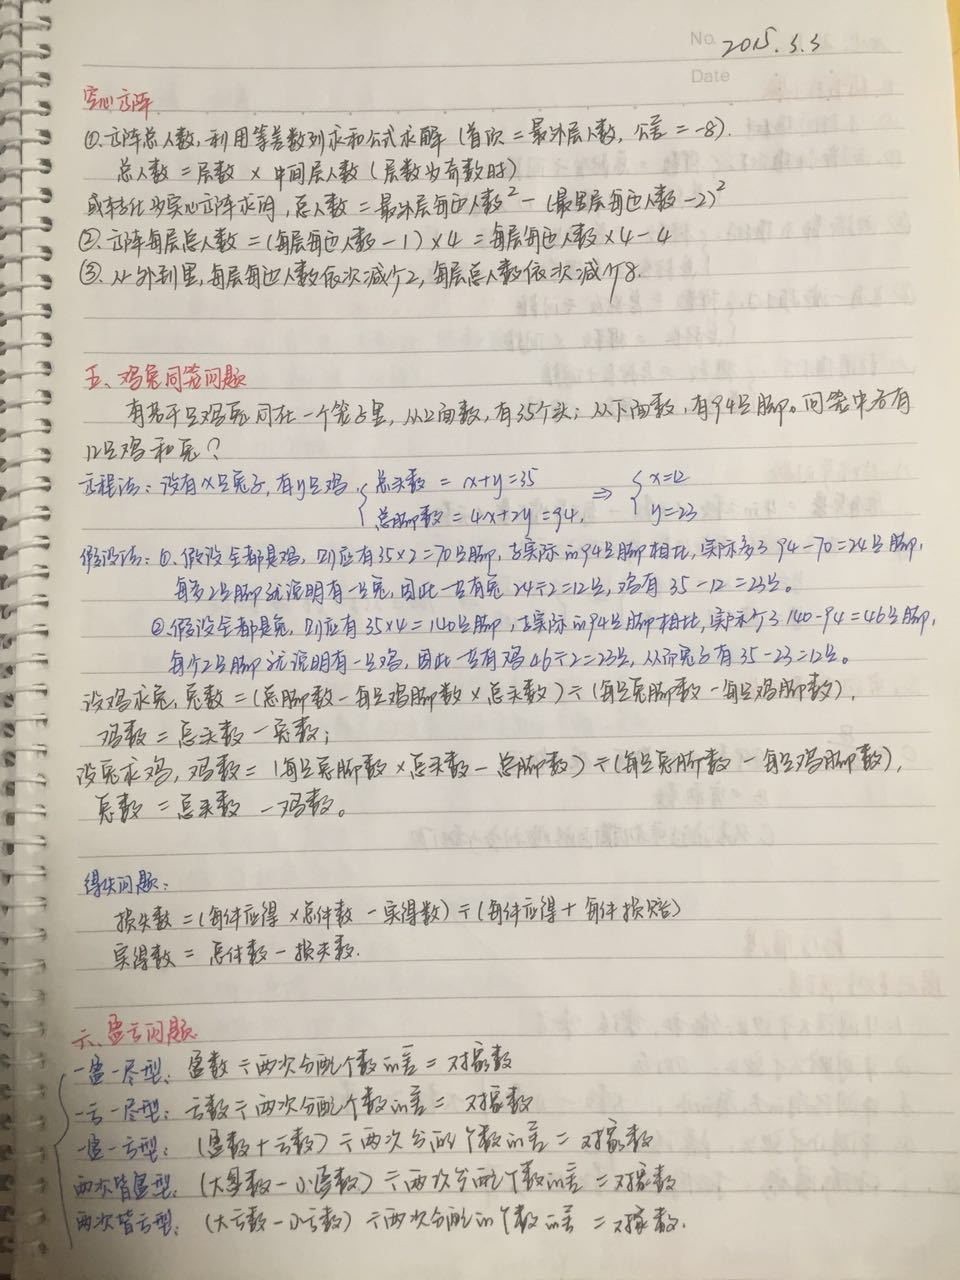 No. 2015.3.3
Date
空心方阵
①.方阵总人数,利用等差数列求和公式求解(首项=最外层人数,公差=-8).
总人数=层数×中间层人数(层数为奇数时)
或转化为实心方阵求得,总人数=最外层每边人数²-(最里层每边人数-2)²
②.方阵每层总人数=(每层每边人数-1)×4=每层每边人数×4-4
③.从外到里,每层每边人数依次减少2,每层总人数依次减少8.
五、鸡兔同笼问题
有若干只鸡兔同在一个笼子里,从上面数,有35个头;从下面数,有94只脚。问笼中各有
几只鸡和兔?
方程法:设有x只兔子,有y只鸡, { 总头数=x+y=35 ⇒ { x=12
总脚数=4x+2y=94. y=23
假设法:①.假设全都是鸡,则应有35×2=70只脚,与实际的94只脚相比,实际多了94-70=24只脚,
每多2只脚就说明有一只兔,因此一共有兔24÷2=12只,鸡有35-12=23只。
②.假设全都是兔,则应有35×4=140只脚,与实际的94只脚相比,实际少了140-94=46只脚,
每少2只脚就说明有一只鸡,因此一共有鸡46÷2=23只,从而兔子有35-23=12只。
设鸡求兔,兔数=(总脚数-每只鸡脚数×总头数)÷(每只兔脚数-每只鸡脚数),
鸡数=总头数-兔数;
设兔求鸡,鸡数=(每只兔脚数×总头数-总脚数)÷(每只兔脚数-每只鸡脚数),
兔数=总头数-鸡数。
得失问题:
损失数=(每件应得×总件数-实得数)÷(每件应得+每件损赔)
实得数=总件数-损失数.
六、盈亏问题
一盈一尽型:盈数÷两次分配个数的差=对象数
一亏一尽型:亏数÷两次分配个数的差=对象数
一盈一亏型:(盈数+亏数)÷两次分的个数的差=对象数
两次皆盈型:(大盈数-小盈数)÷两次分配个数的差=对象数
两次皆亏型:(大亏数-小亏数)÷两次分配的个数的差=对象数.